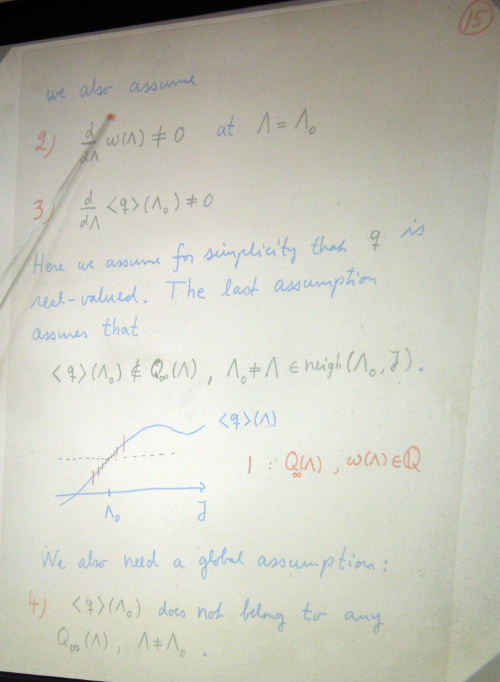 15
we also assume
2) d/dΛ ω(Λ) ≠ 0 at Λ = Λ₀
3) d/dΛ <q>(Λ₀) ≠ 0
Here we assume for simplicity that q is
real-valued. The last assumption
assures that
<q>(Λ₀) ∉ Q∞(Λ), Λ₀ ≠ Λ ∈ neigh(Λ₀, J).
<q>(Λ)
| : Q∞(Λ), ω(Λ) ∈ ℚ
Λ₀ J
We also need a global assumption:
4) <q>(Λ₀) does not belong to any
Q∞(Λ), Λ ≠ Λ₀.